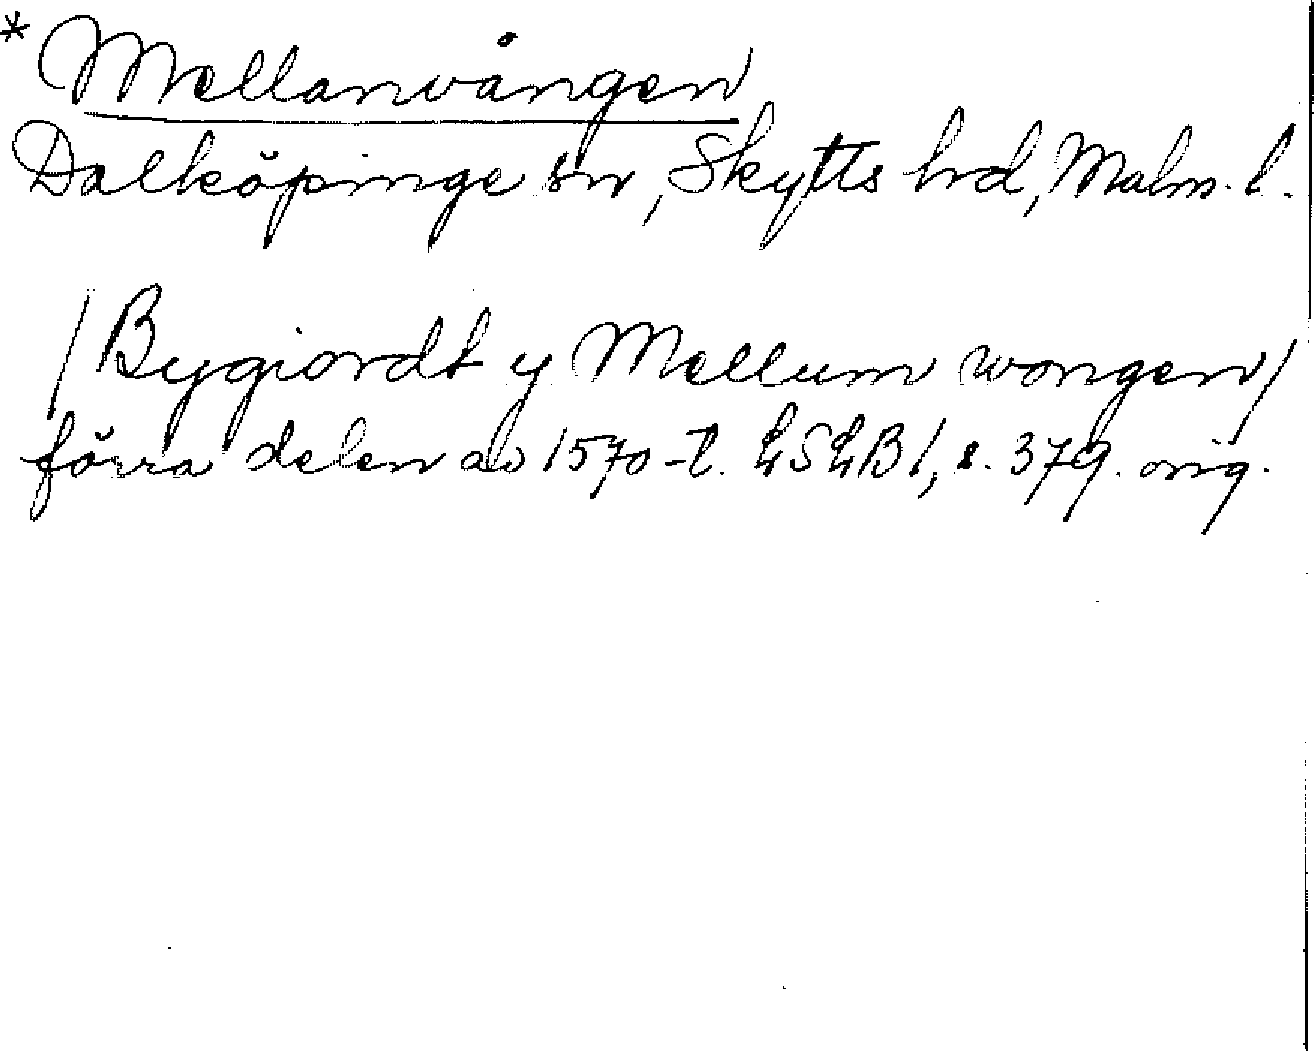 * Mellanvången
Dalköpinge sn, Skytts hrd, Malm. l.
/Bygiordt y Mellum wongen/
förra delen av 1570-t. LSLB I, s. 379. orig.